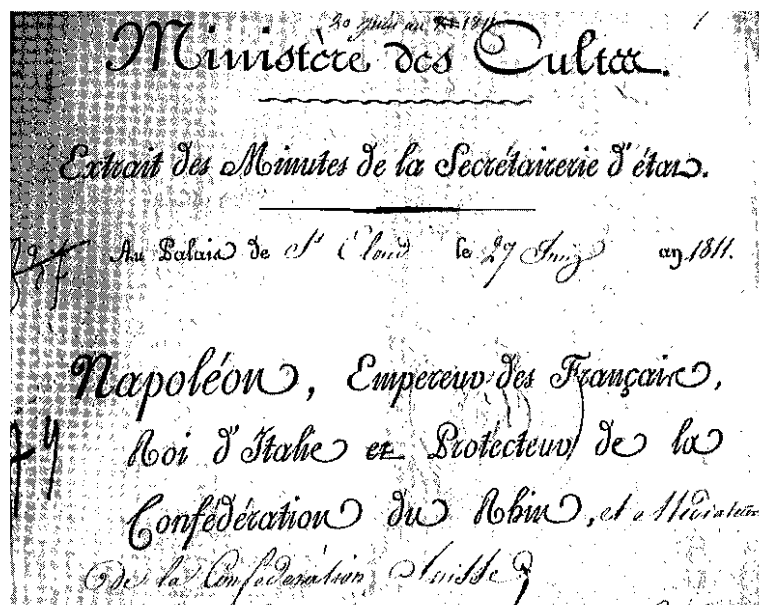 30 juin 1811
Ministère des Cultes.
Extrait des Minutes de la Secrétairerie d'état.
Au Palais de St Cloud le 27 Juin an 1811.
Napoléon, Empereur des Français,
Roi d'Italie et Protecteur de la
Confédération du Rhin, et Médiateur
de la Confédération Suisse